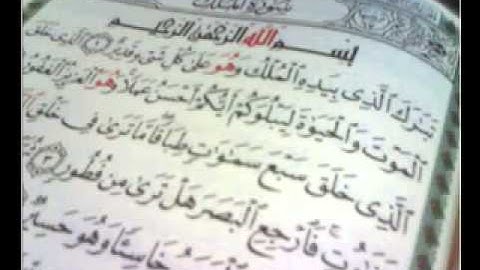 سورة الملك
بسم الله الرحمن الرحيم
تَبَٰرَكَ ٱلَّذِى بِيَدِهِ ٱلْمُلْكُ وَهُوَ عَلَىٰ كُلِّ شَىْءٍ قَدِيرٌ ١ ٱلَّذِى خَلَقَ
ٱلْمَوْتَ وَٱلْحَيَوٰةَ لِيَبْلُوَكُمْ أَيُّكُمْ أَحْسَنُ عَمَلًا وَهُوَ ٱلْعَزِيزُ ٱلْغَفُورُ
ٱلَّذِى خَلَقَ سَبْعَ سَمَٰوَٰتٍ طِبَاقًا مَّا تَرَىٰ فِى خَلْقِ
فَٱرْجِعِ ٱلْبَصَرَ هَلْ تَرَىٰ مِن فُطُورٍ ٣
خَاسِئًا وَهُوَ حَسِيرٌ